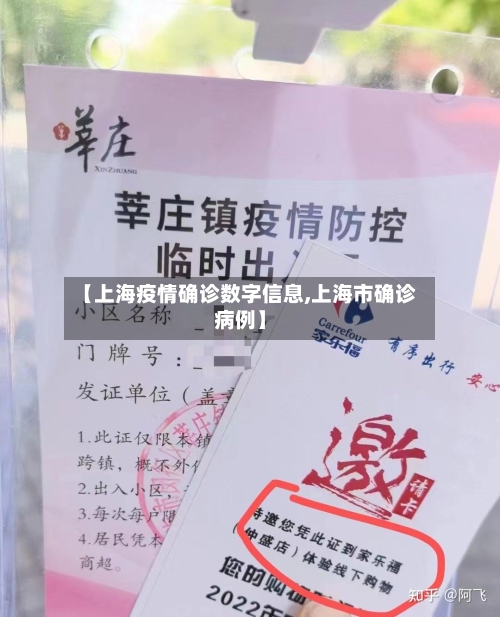 莘庄
XINZHUANG
莘庄镇疫情防控
临时出入
【上海疫情确诊数字信息,上海市确诊
病例】
小区名称
门牌号:
发证单位(盖章
1.此证仅限本镇
跨镇,概不外
2.出入小区,
3.每次每户限
4.居民凭本
商超。
Carrefour
家乐福
有序出行 安心
邀
请卡
特邀您凭此证到家乐福
(仲盛店)体验线下购物
您的购
2022年
知乎 @阿飞